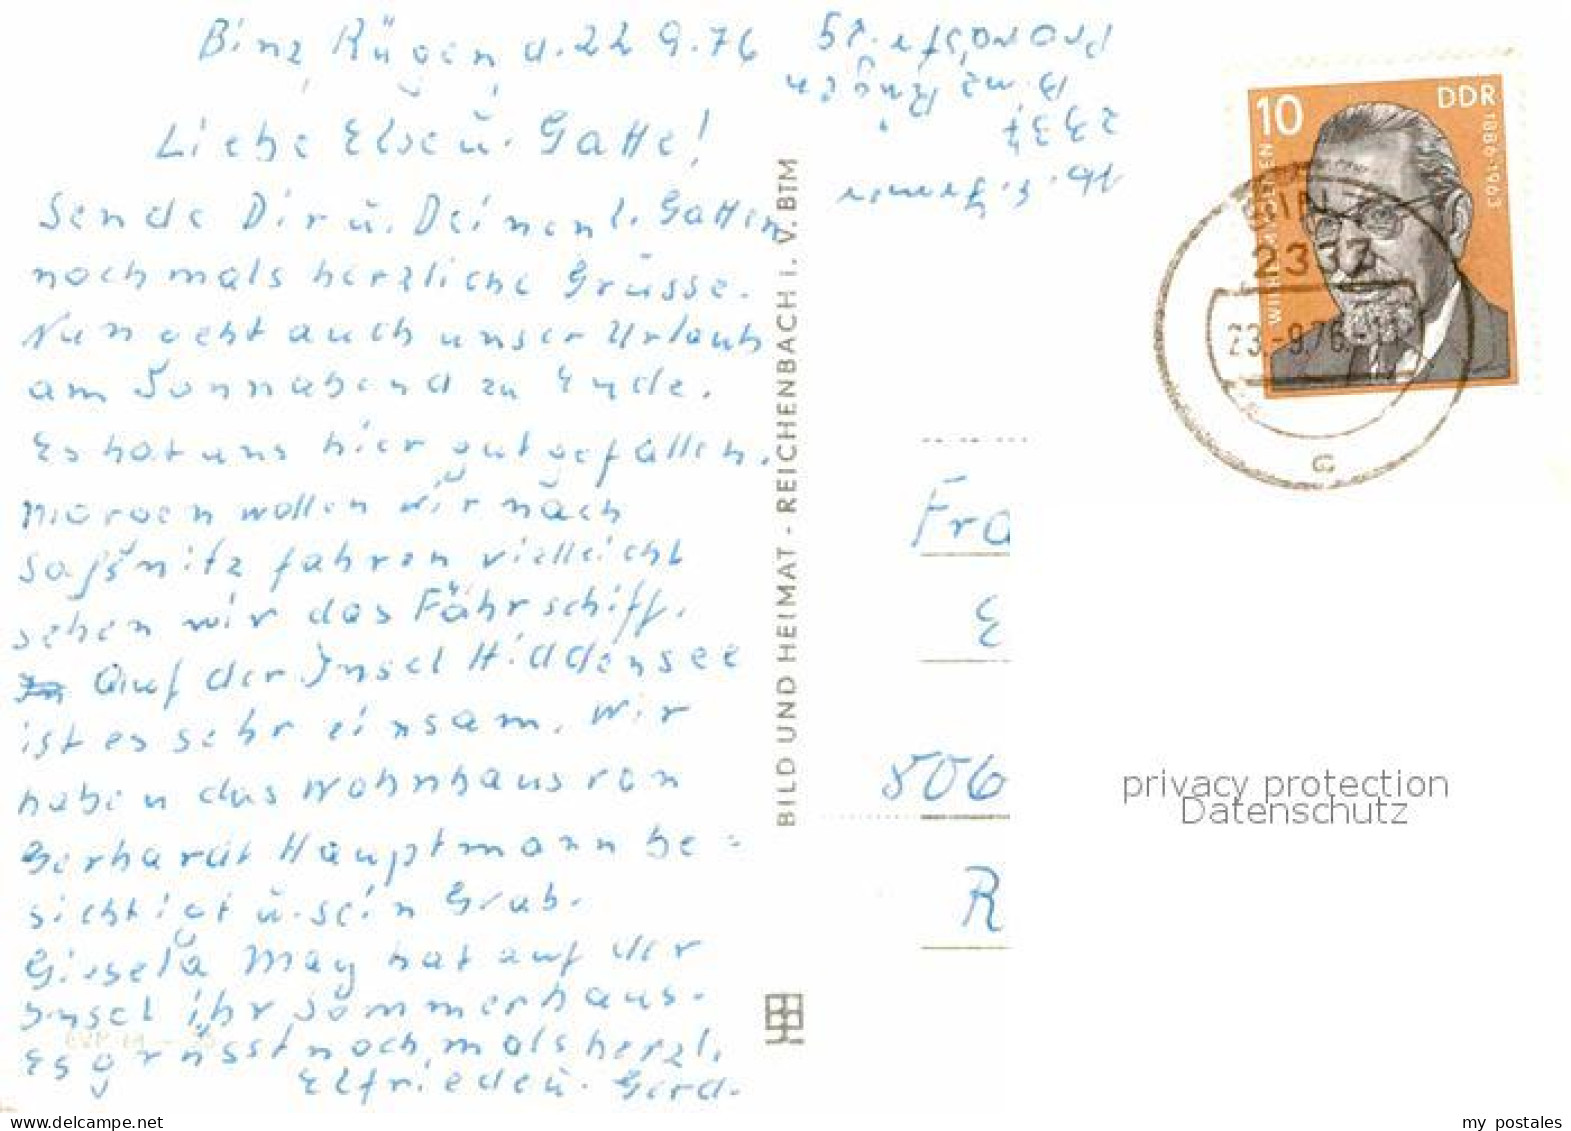 Binz, Rügen, d. 22 9. 76
Liebe Else u. Gatte!
Sende Dir u. Deinen l. Gatten
nochmals herzliche Grüsse.
Nun geht auch unser Urlaub
am Sonnabend zu Ende.
Es hat uns hier gut gefallen.
Morgen wollen wir nach
Saßnitz fahren vielleicht
sehen wir das Fährschiff.
Auf der Insel Hiddensee
ist es sehr einsam. Wir
haben das Wohnhaus von
Gerhardt Hauptmann be=
sichtigt u. sein Grab.
Gissela May hat auf der
Insel ihr Sommerhaus.
Es grüsst nochmals herzl.
Elfriede u. Gerd.
BILD UND HEIMAT · REICHENBACH i. V. BTM
Abs.
2337
Binz Rügen
10
DDR
1886-1963
23.-9.76
Fra
E
806
R
privacy protection
Datenschutz
my postales